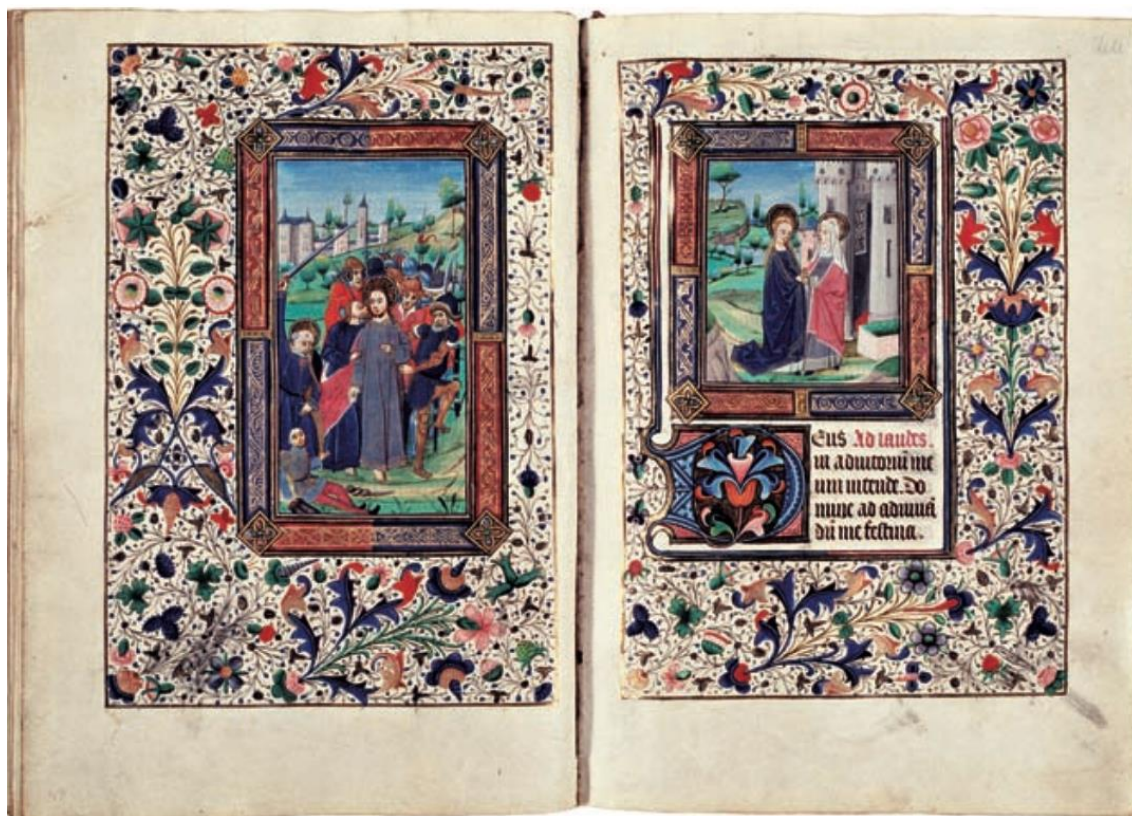 DEus Ad laudes.
in adiutoriū me
um intende. Do
mine ad adiuuā
dū me festina.